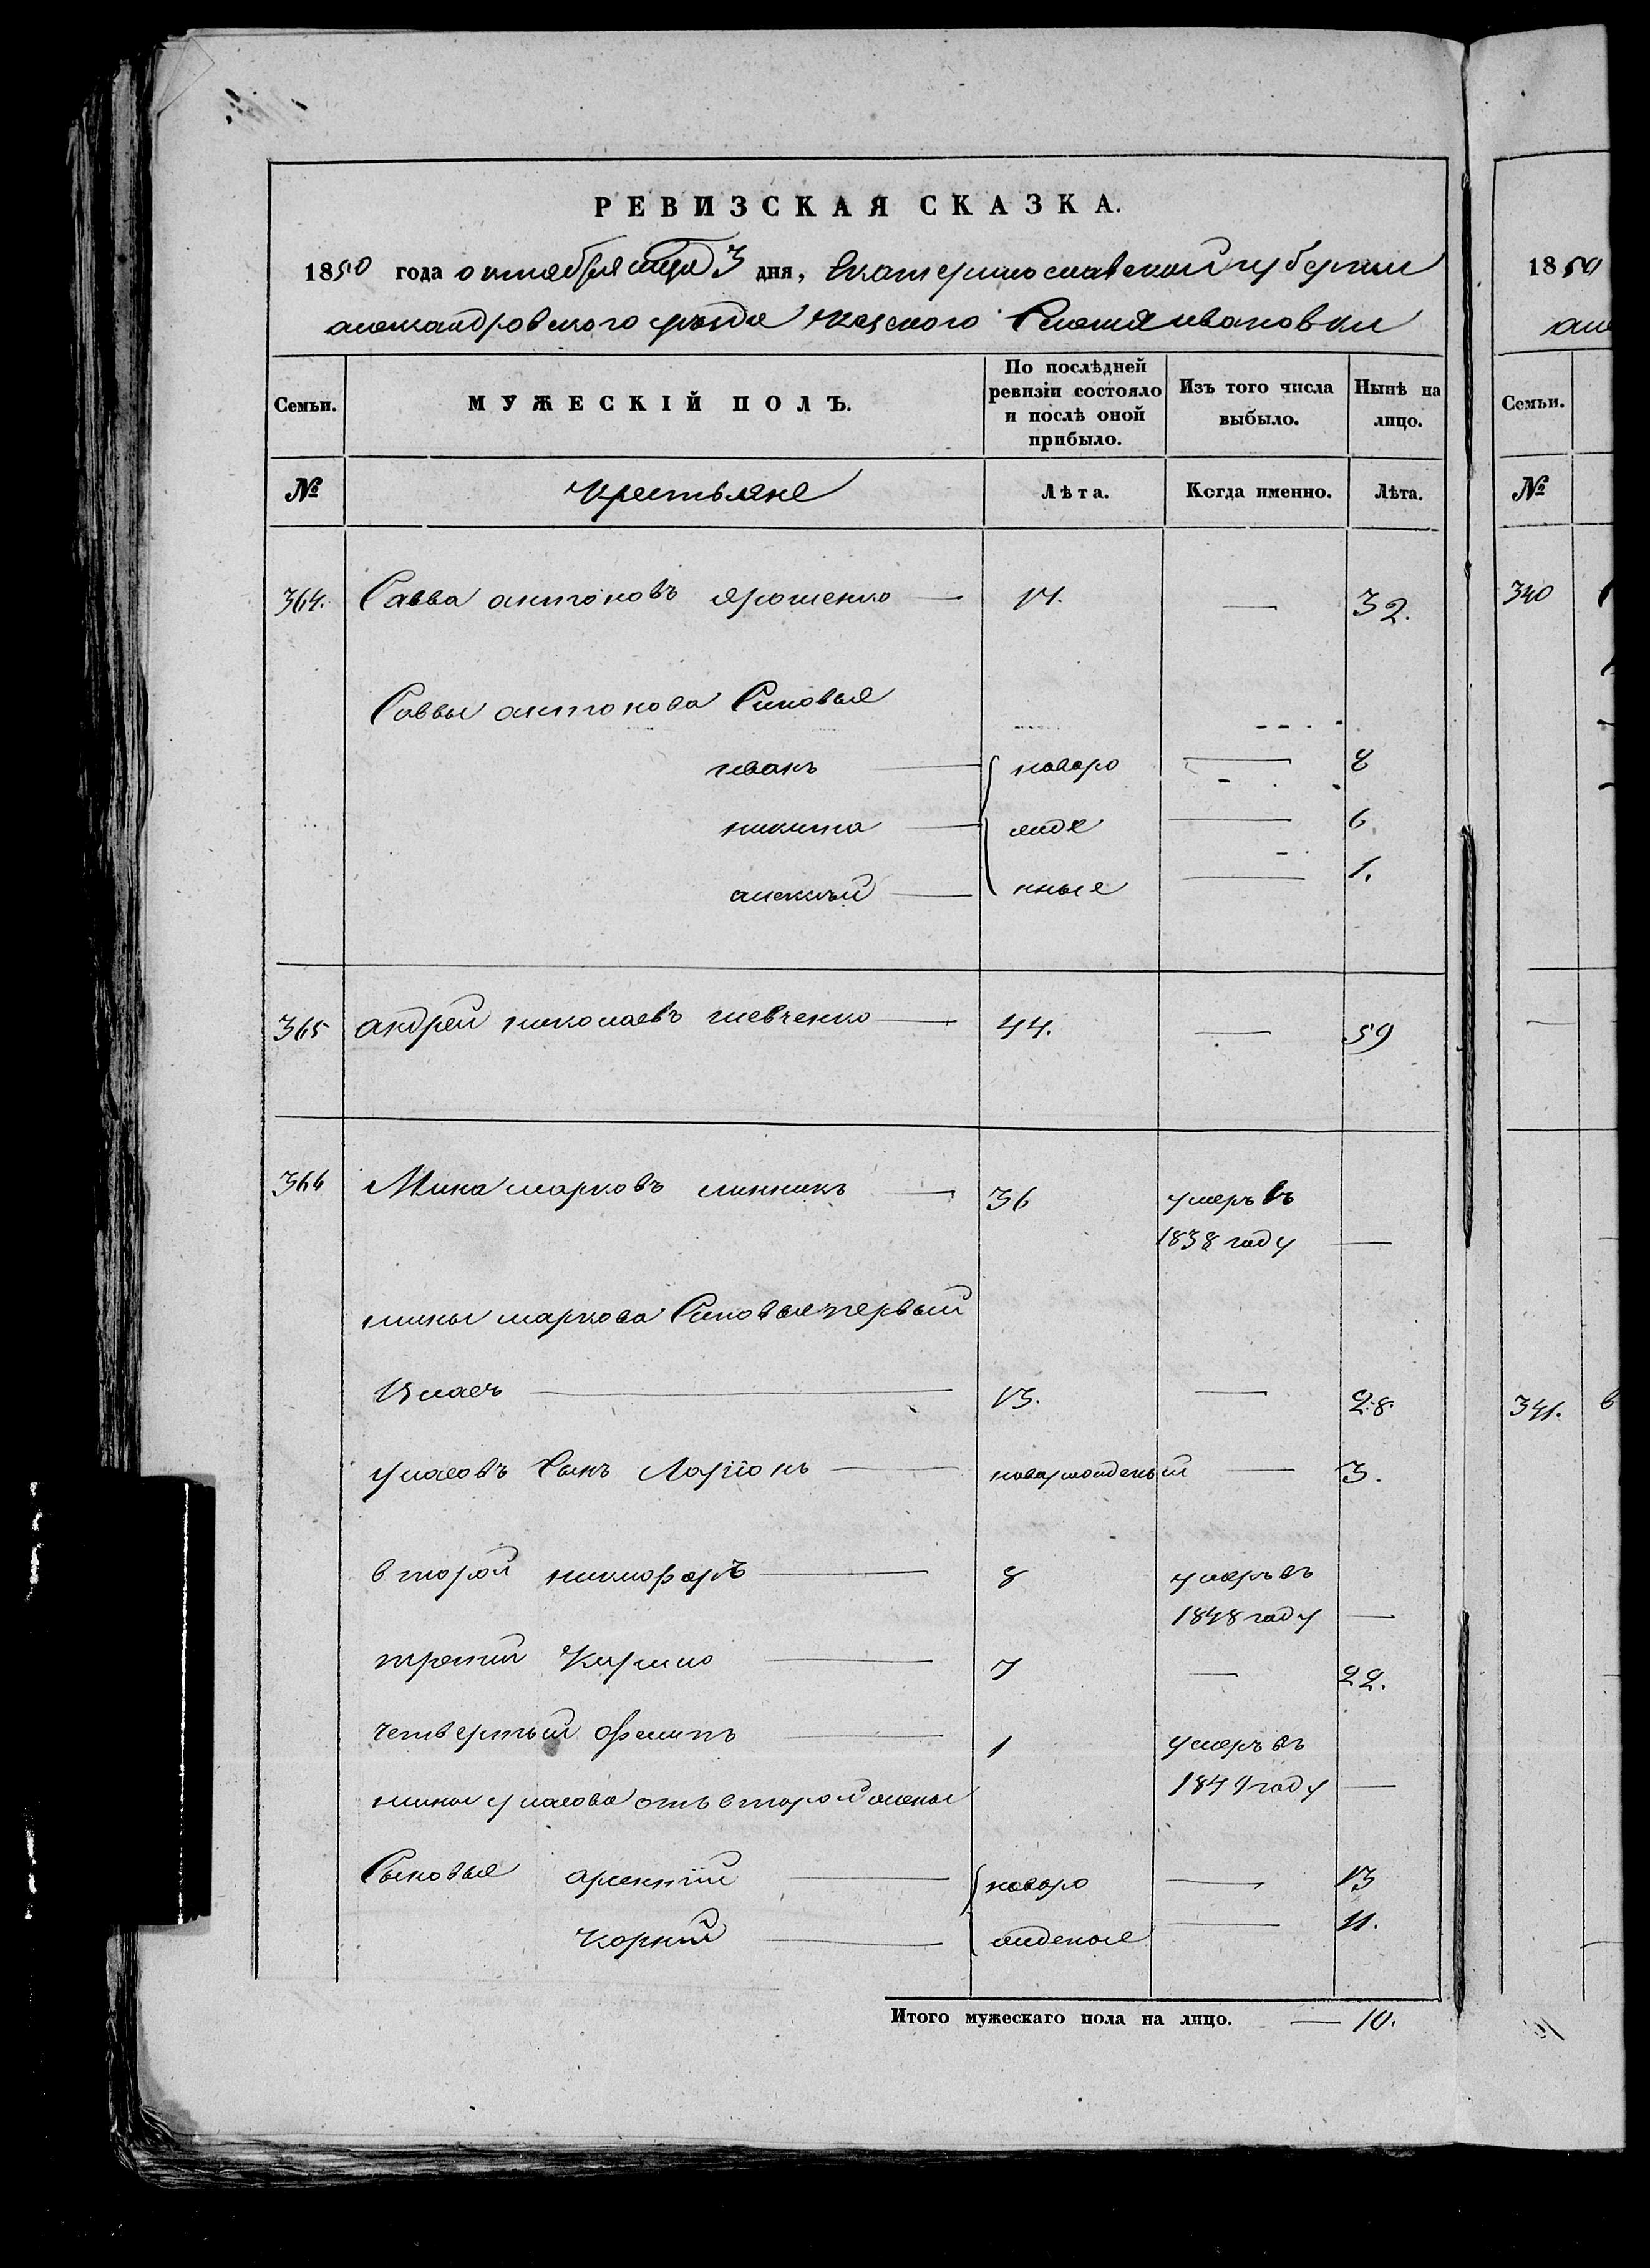 РЕВИЗСКАЯ СКАЗКА.
1850 года октября мца 3 дня, Екатеринославской губернии
александровского уезда казеного Села Ивановки
Семьи. МУЖЕСКІЙ ПОЛЪ. По послѣдней ревизіи состояло и послѣ оной прибыло. Изъ того числа выбыло. Нынѣ на лицо.
№ крестьяне Лѣта. Когда именно. Лѣта.
364. Савва антоновъ ярошенко — 17. — 32.
Саввы антонова Синовья
иванъ — новоро — 8
никита — жде — 6
алексѣй — нные — 1.
365 андрей николаевъ шевченко — 44. — 59
366 Мина марковъ линникъ — 36 умеръ въ
1838 году —
мины маркова Синовья первый
Власъ — 13. — 28.
власовъ Сынъ Ларіонъ — новорожденый — 3.
второй никифоръ — 8 умеръ въ
1848 году —
третий Кирило — 7 — 22.
четвертый филипъ — 1 умеръ въ
1849 году —
мины отъ второй жены
Сыновья арсентій — новоро — 13
Корній — жденые — 11.
Итого мужескаго пола на лицо. — 10.
1850
Семьи.
№
340
341.